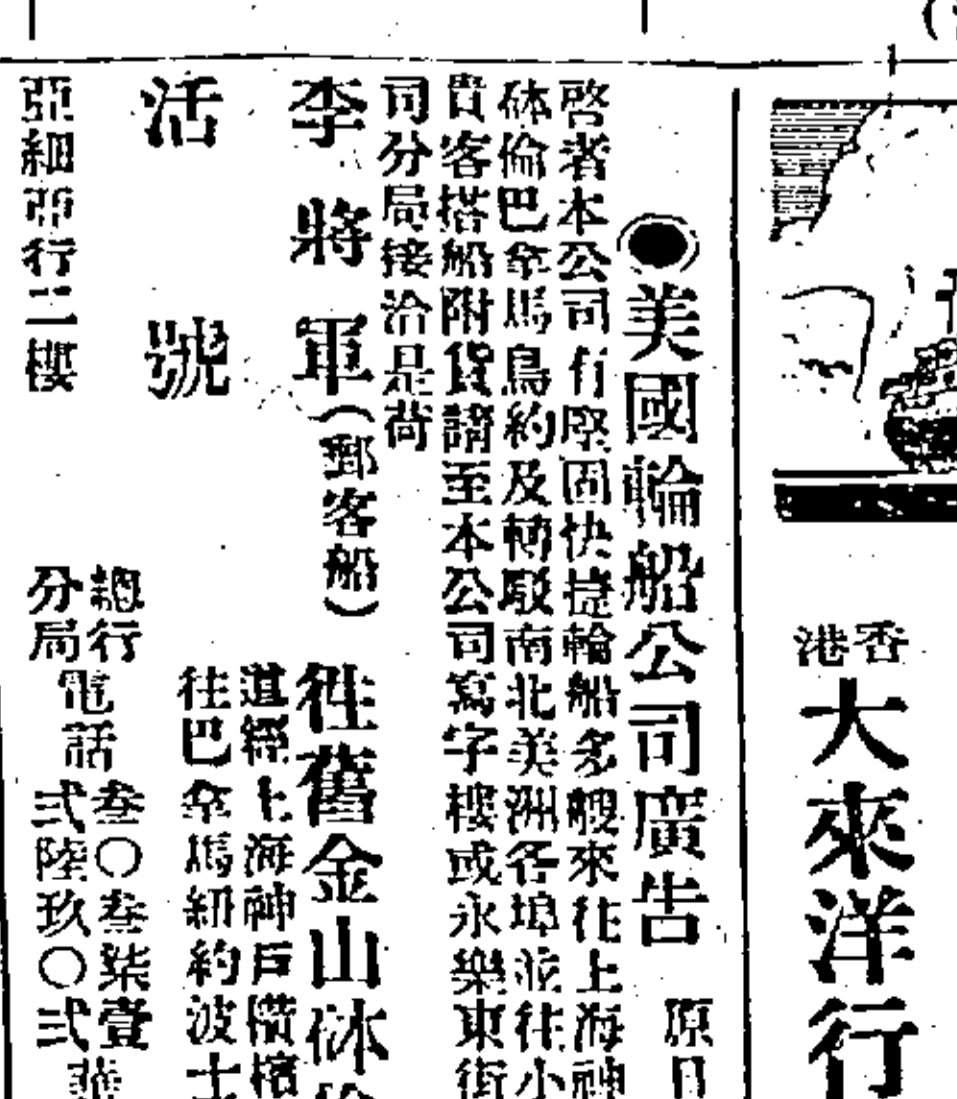 香港
大來洋行
●美國輪船公司廣告
原日
啓者本公司有堅固快捷輪船多艘來往上海神
砵倫巴拿馬鳥約及轉駁南北美洲各埠並往小
貴客搭船附貨請至本公司寫字樓或永樂東街
司分局接洽是荷
李將軍(郵客船)
往舊金山砵倫
道經上海神戶橫檳
往巴拿馬紐約波士
活號
總行
分局
電話
叁〇叁柒壹
弍陸玖〇弍
亞細亞行二樓